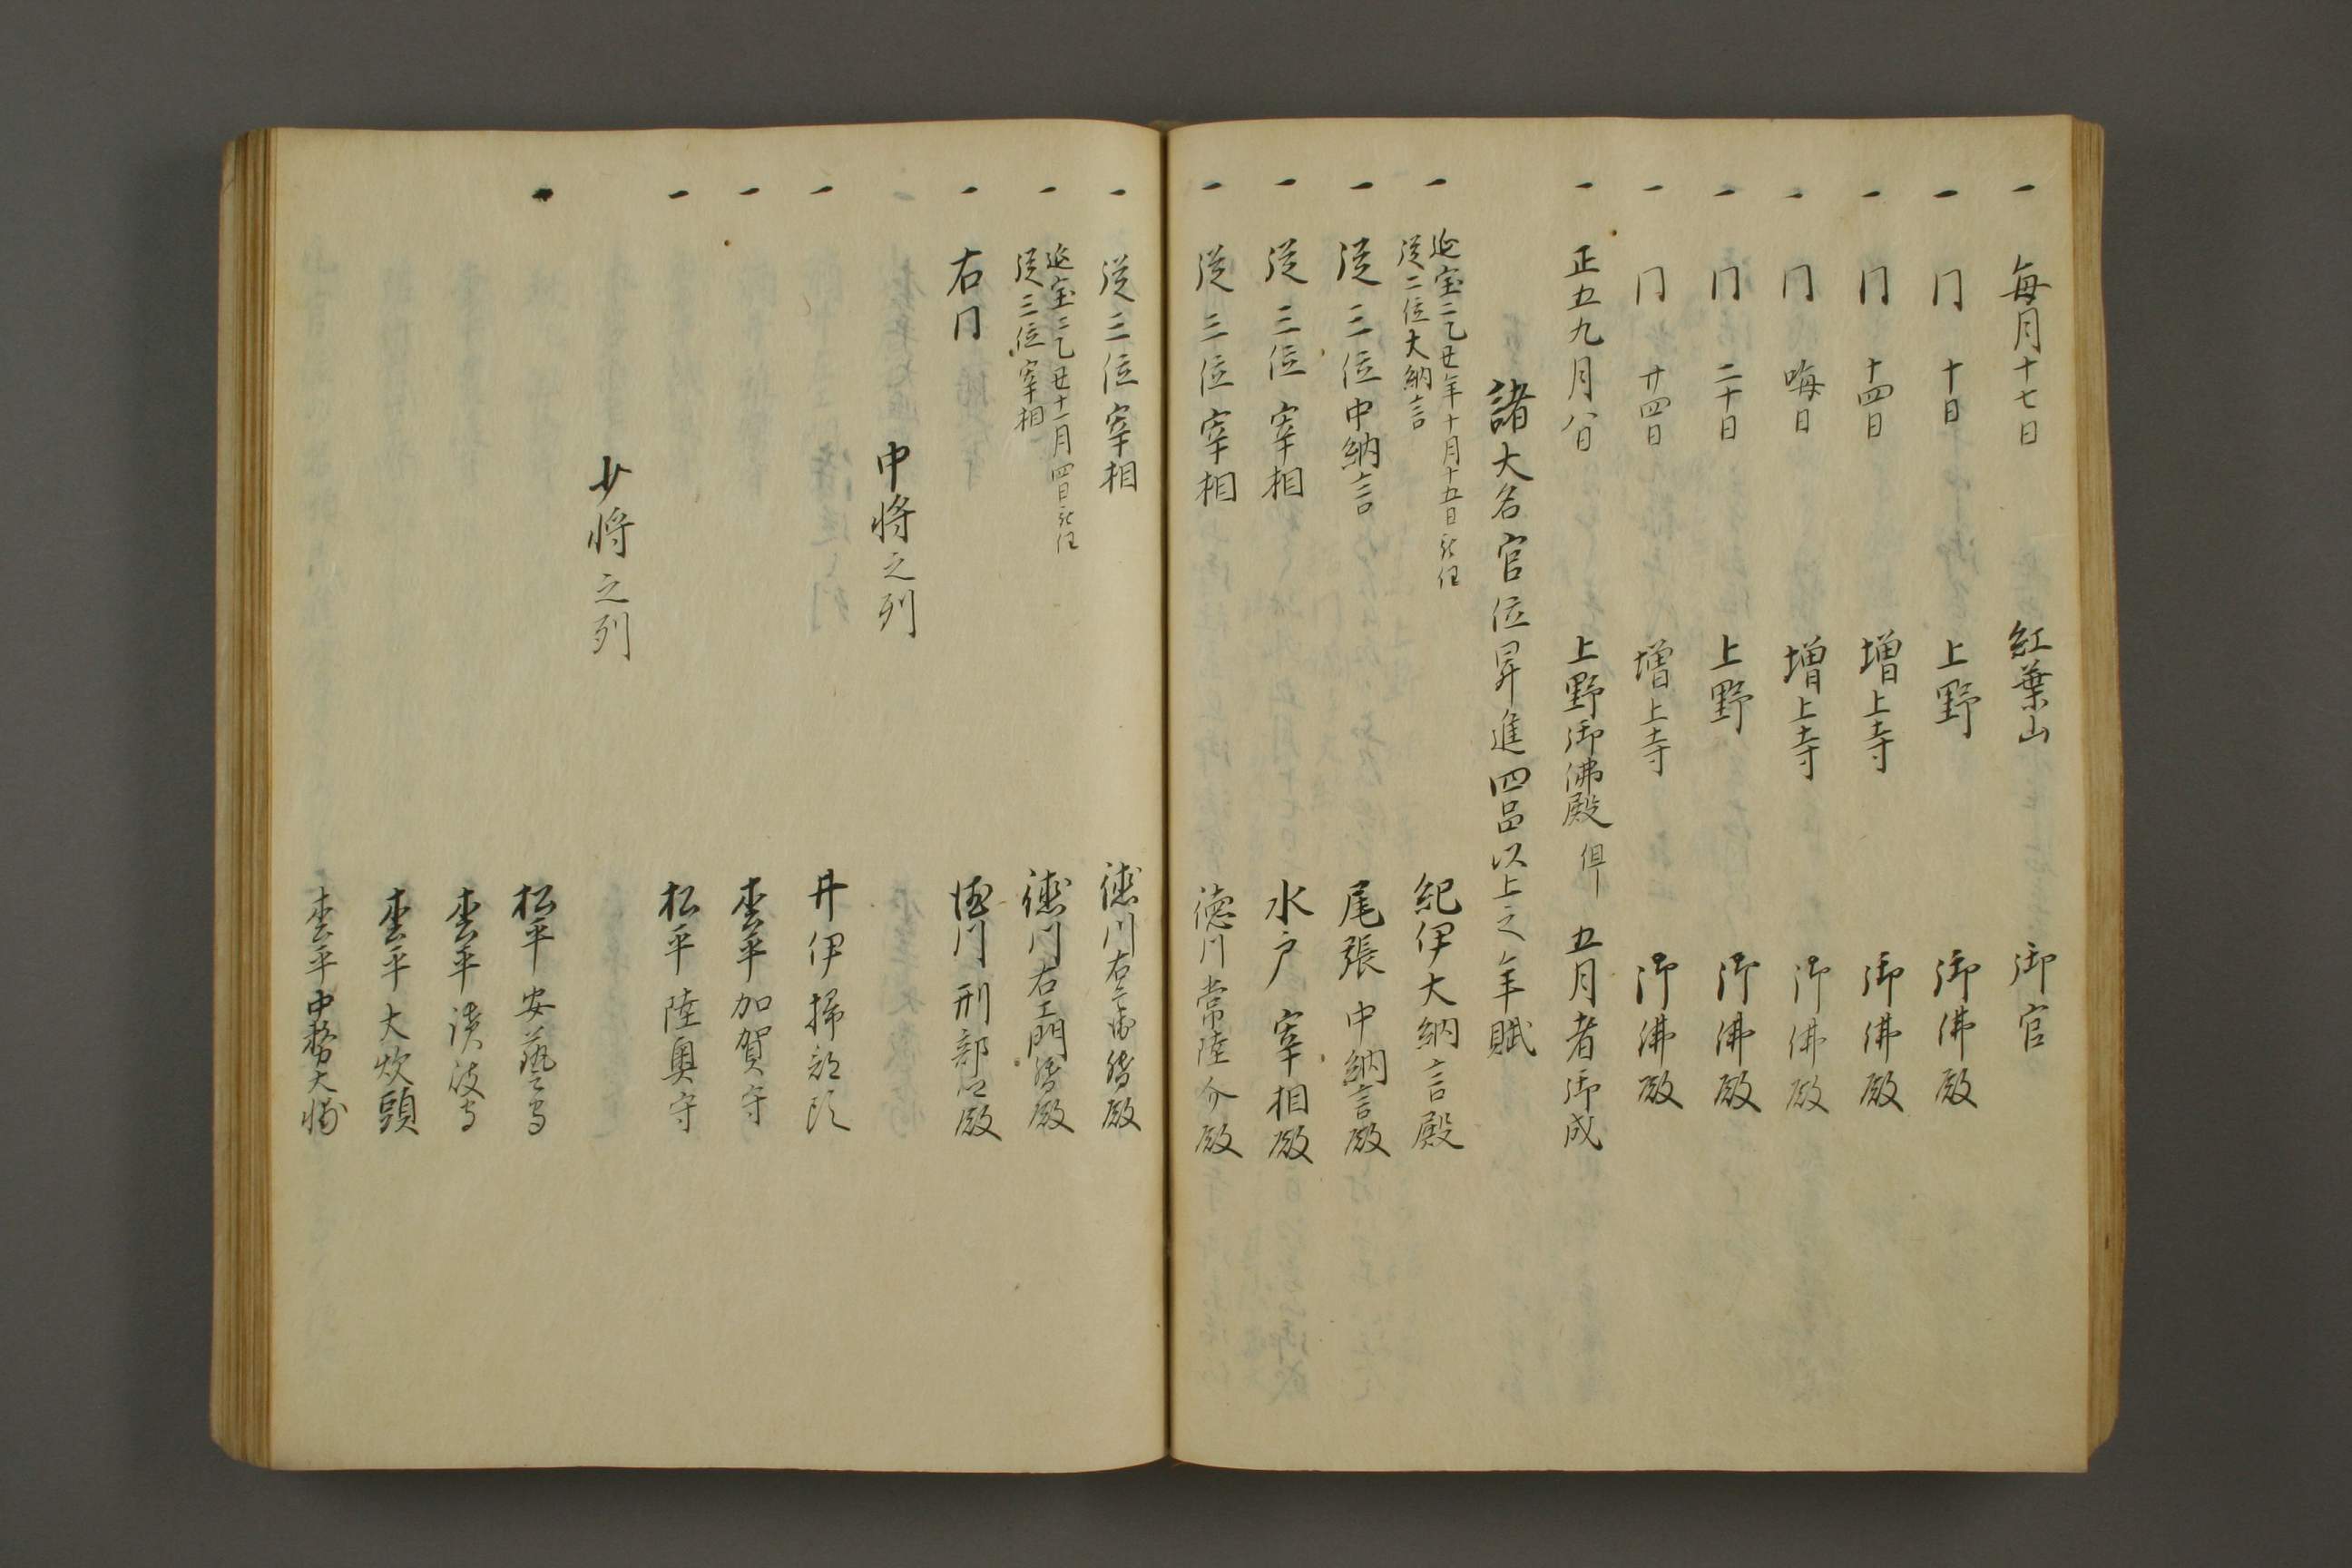 一 毎月十七日 紅葉山 御宮
一 同 十日 上野 御佛殿
一 同 十四日 増上寺 御佛殿
一 同 晦日 増上寺 御佛殿
一 同 二十日 上野 御佛殿
一 同 廿四日 増上寺 御佛殿
一 正五九月八日 上野御佛殿 但 五月者御成
諸大名官位昇進四品以上之年賦
一 延宝二乙丑年十月十五日 従二位大納言 紀伊大納言殿
一 従三位中納言 尾張中納言殿
一 従三位宰相 水戸宰相殿
一 従三位宰相 徳川常陸介殿
一 従三位宰相 徳川右兵衛督殿
一 延宝二乙丑十一月四日 従三位宰相 徳川右衛門督殿
一 右同 徳川刑部卿殿
中将之列
一 井伊掃部頭
一 松平加賀守
一 松平陸奥守
少将之列
一 松平安藝守
松平讃岐守
松平大炊頭
松平中務大輔